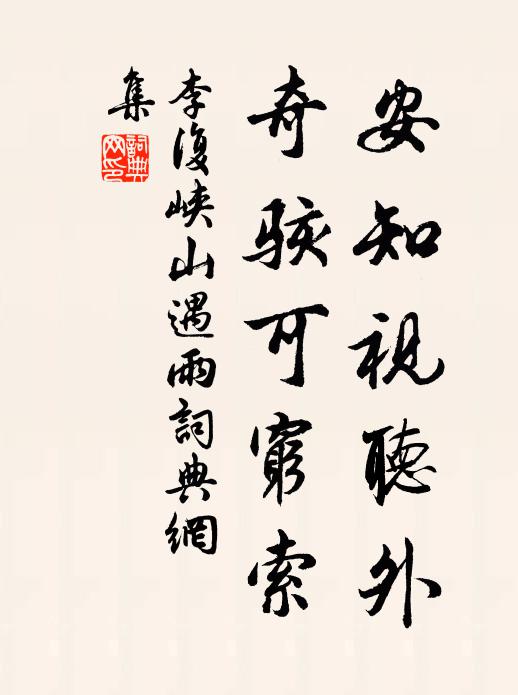 安知視聽外
奇駭可窮索
李復峽山遇雨詞典網
集
詞典
网印